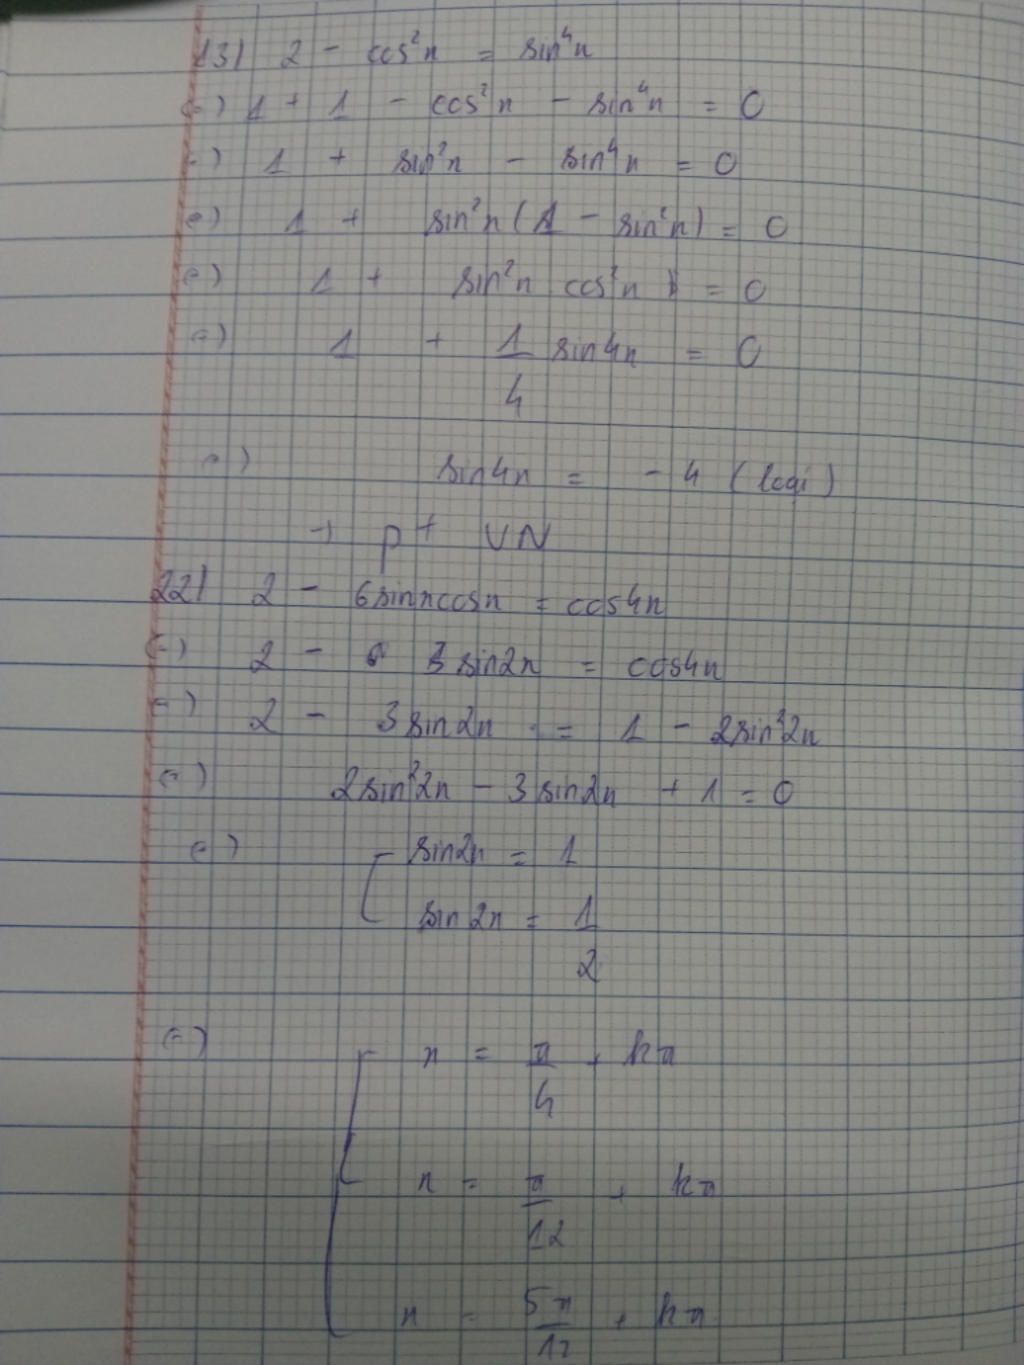 13) 2 - cos²x = sin⁴x
(=) 1 + 1 - cos²x - sin⁴x = 0
(=) 1 + sin²x - sin⁴x = 0
(=) 1 + sin²x(1 - sin²x) = 0
(=) 1 + sin²x cos²x = 0
(=) 1 + 1/4 sin4x = 0
(=) sin4x = -4 (loại)
→ pt VN
22) 2 - 6sinxcosx = cos4x
(=) 2 - 3sin2x = cos4x
(=) 2 - 3sin2x = 1 - 2sin²2x
(=) 2sin²2x - 3sin2x + 1 = 0
(=) [ sin2x = 1
sin2x = 1/2
(=) [ x = π/4 + kπ
x = π/12 + kπ
x = 5π/12 + kπ